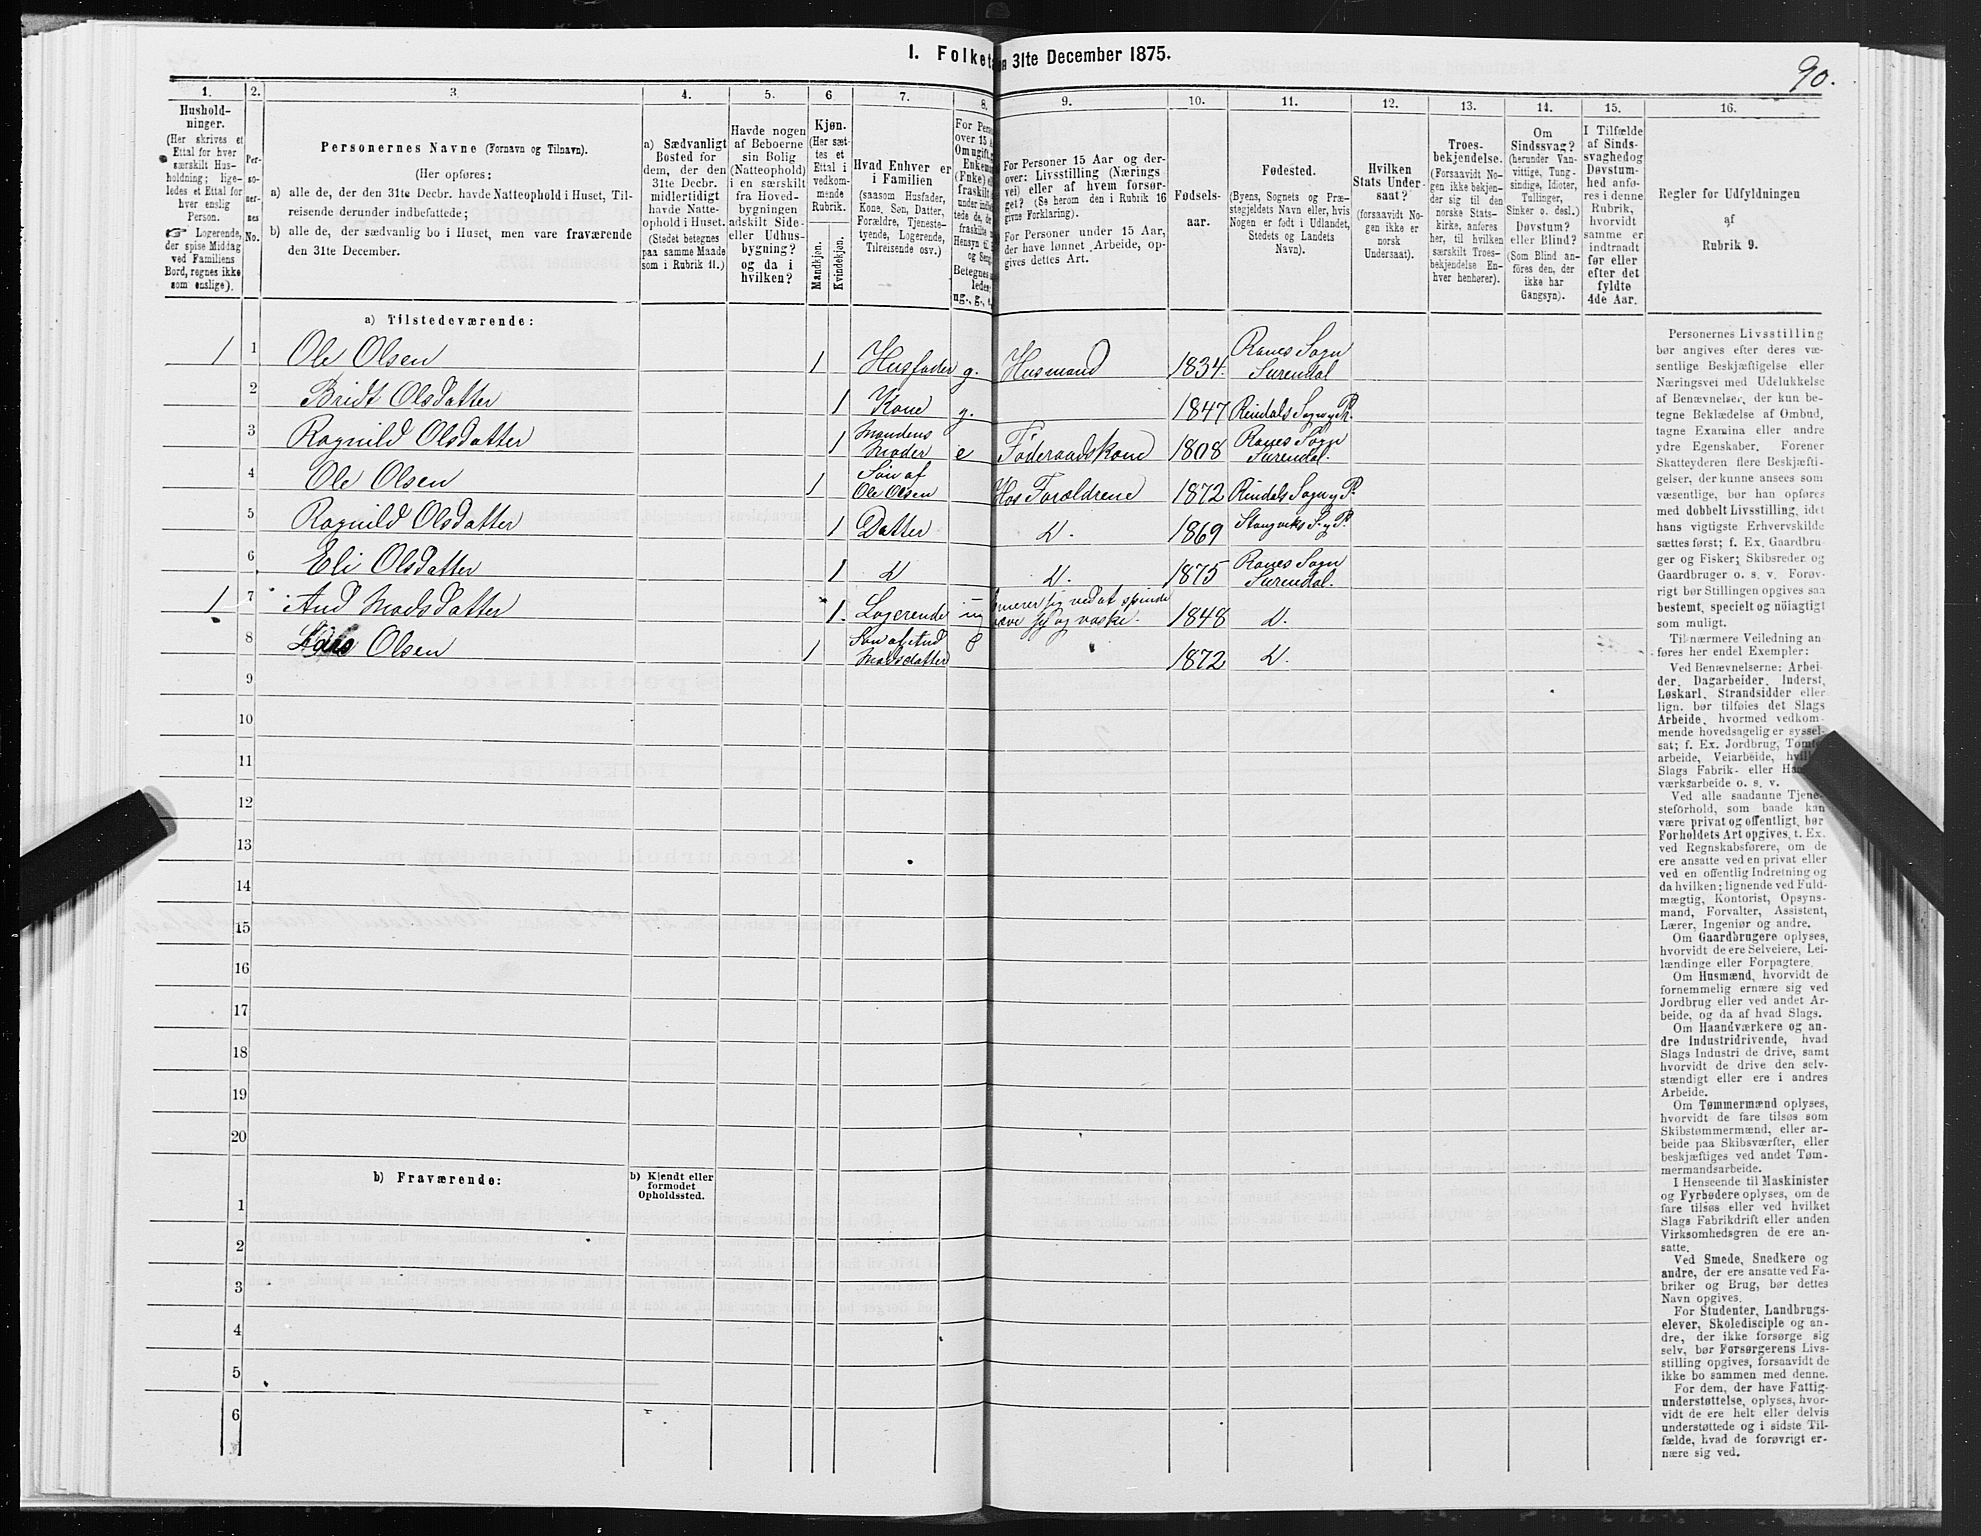 I. Folket en 31te December 1875.
90.
1.
2.
3.
4.
5.
6
7.
8.
9.
10.
11.
12.
13.
14.
15.
16.
Hushold-
ninger.
(Her skrives et
Ettal for hver
særskilt Hus-
holdning; lige-
ledes et Ettal for
hver enslig
Person.
☞ Logerende,
der spise Middag
ved Familiens
Bord, regnes ikke
som enslige).
Per-
so-
ner-
nes
No.
Personernes Navne (Fornavn og Tilnavn).
(Her opføres:
a) alle de, der den 31te Decbr. havde Natteophold i Huset, Til-
reisende derunder indbefattede;
b) alle de, der sædvanlig bo i Huset, men vare fraværende
den 31te December.
a) Sædvanligt
Bosted for
dem, der den
31te Decbr.
midlertidigt
havde Natte-
ophold i Huset.
(Stedet betegnes
paa samme Maade
som i Rubrik 11.)
Havde nogen
af Beboerne
sin Bolig
(Natteophold)
i en særskilt
fra Hoved-
bygningen
adskilt Side-
eller Udhus-
bygning?
og da i
hvilken?
Kjøn.
(Her sæt-
tes et
Ettal i
vedkom-
mende
Rubrik.
Mandkjøn.
Kvindekjøn.
Hvad Enhver er
i Familien
(saasom Husfader,
Kone, Søn, Datter,
Forældre, Tjeneste-
tyende, Logerende,
Tilreisende osv.)
For Pers
over 15 A
Om ugift, g
Enkem
(Enke) e
fraskilt
under indbe
tede de, de
fraskilte
Hensyn til
og Seng
Betegnes s
ledes:
ug., g., e.
For Personer 15 Aar og der-
over: Livsstilling (Nærings
vei) eller af hvem forsør-
get? (Se herom den i Rubrik 16
givne Forklaring).
For Personer under 15 Aar,
der have lønnet Arbeide, op-
gives dettes Art.
Fødsels-
aar.
Fødested.
(Byens, Sognets og Præ-
stegjeldets Navn eller, hvis
Nogen er født i Udlandet,
Stedets og Landets
Navn).
Hvilken
Stats Under-
saat?
(forsaavidt No-
gen ikke er
norsk
Undersaat).
Troes-
bekjendelse.
(Forsaavidt No-
gen ikke bekjen-
der sig til den
norske Stats-
kirke, anføres
her, til hvilken
særskilt Troes-
bekjendelse En-
hver henhører).
Om
Sindssvag?
(herunder Van-
vittige, Tung-
sindige, Idioter,
Tullinger,
Sinker o. desl.)
Døvstum?
eller Blind?
(Som Blind an-
føres den, der
ikke har
Gangsyn).
I Tilfælde
af Sinds-
svaghedog
Døvstum-
hed anfø-
res i denne
Rubrik,
hvorvidt
samme er
indtraadt
før eller
efter det
fyldte
4de Aar.
Regler for Udfyldningen
af
Rubrik 9.
a) Tilstedeværende:
1 1 Ole Olsen 1 Husfader g. Husmand 1834. Ranes Sogn Surendal
2 Bridt Olsdatter 1 Kone g. 1847 Rindals Sogn y P.
3 Ragnild Olsdatter 1 Mandens Moder e Føderaadskone 1808 Ranes Sogn Surendal.
4 Ole Olsen 1 Søn af Ole Olsen Hos Forældrene 1872 Rindals Sogn y P.
5 Ragnild Olsdatter 1 Datter d. 1869 Stangviks S. y P.
6 Eli Olsdatter 1 d d. 1875 Ranes Sogn Surendal.
1 7 And Madsdatter 1. Logerende ug ernærer sig ved at spinde væve sy og vaske. 1848 d.
8 Olsen 1 Søn af And Madsdatter 1872 d.
9
10
11
12
13
14
15
16
17
18
19
20
b) Fraværende:
b) Kjendt eller
formodet
Opholdssted.
1
2
3
4
5
6
Personernes Livsstilling
bør angives efter deres væ-
sentlige Beskjæftigelse eller
Næringsvei med Udelukkelse
af Benævnelser, der kun be-
tegne Beklædelse af Ombud,
tagne Examina eller andre
ydre Egenskaber. Forener
Skatteyderen flere Beskjæfti-
gelser, der kunne ansees som
væsentlige, bør han opføres
med dobbelt Livsstilling, idet
hans vigtigste Erhvervskilde
sættes først; f. Ex. Gaardbru-
ger og Fisker; Skibsreder og
Gaardbruger o. s. v. Forøv-
rigt bør Stillingen opgives saa
bestemt, specielt og nøiagtigt
som muligt.
Til nærmere Veiledning an-
føres her endel Exempler:
Ved Benævnelserne: Arbei-
der, Dagarbeider, Inderst,
Løskarl, Strandsidder eller
lign. bør tilføies det Slags
Arbeide, hvormed vedkom-
mende hovedsagelig er syssel-
sat; f. Ex. Jordbrug, Tømte-
arbeide, Veiarbeide, hvil
Slags Fabrik- eller Ha
værksarbeide o. s. v.
Ved alle saadanne Tjene-
steforhold, som baade kan
være privat og offentligt, bør
Forholdets Art opgives, t. Ex.
ved Regnskabsførere, om de
ere ansatte ved en privat eller
ved en offentlig Indretning og
da hvilken; lignende ved Fuld-
mægtig, Kontorist, Opsyns-
mand, Forvalter, Assistent,
Lærer, Ingeniør og andre.
Om Gaardbrugere oplyses,
hvorvidt de ere Selveiere, Lei-
lændinge eller Forpagtere.
Om Husmænd, hvorvidt de
fornemmelig ernære sig ved
Jordbrug eller ved andet Ar-
beide, og da af hvad Slags.
Om Haandværkere og an-
dre Industridrivende, hvad
Slags Industri de drive, samt
hvorvidt de drive den selv-
stændigt eller ere i andres
Arbeide.
Om Tømmermænd oplyses,
hvorvidt de fare tilsøs som
Skibstømmermænd, eller ar-
beide paa Skibsværfter, eller
beskjæftiges ved andet Tøm-
mermandsarbeide.
I Henseende til Maskinister
og Fyrbødere oplyses, om de
fare tilsøs eller ved hvilket
Slags Fabrikdrift eller anden
Virksomhedsgren de ere an-
satte.
Ved Smede, Snedkere og
andre, der ere ansatte ved Fa-
briker og Brug, bør dettes
Navn opgives.
For Studenter, Landbrugs-
elever, Skoledisciple og an-
dre, der ikke forsørge sig
selv, bør Forsørgerens Livs-
stilling opgives, forsaavidt de
ikke bo sammen med denne.
For dem, der have Fattig-
understøttelse, oplyses, hvor-
vidt de ere helt eller delvis
understøttede og i sidste Til-
fælde, hvad de forøvrigt er-
nære sig ved.